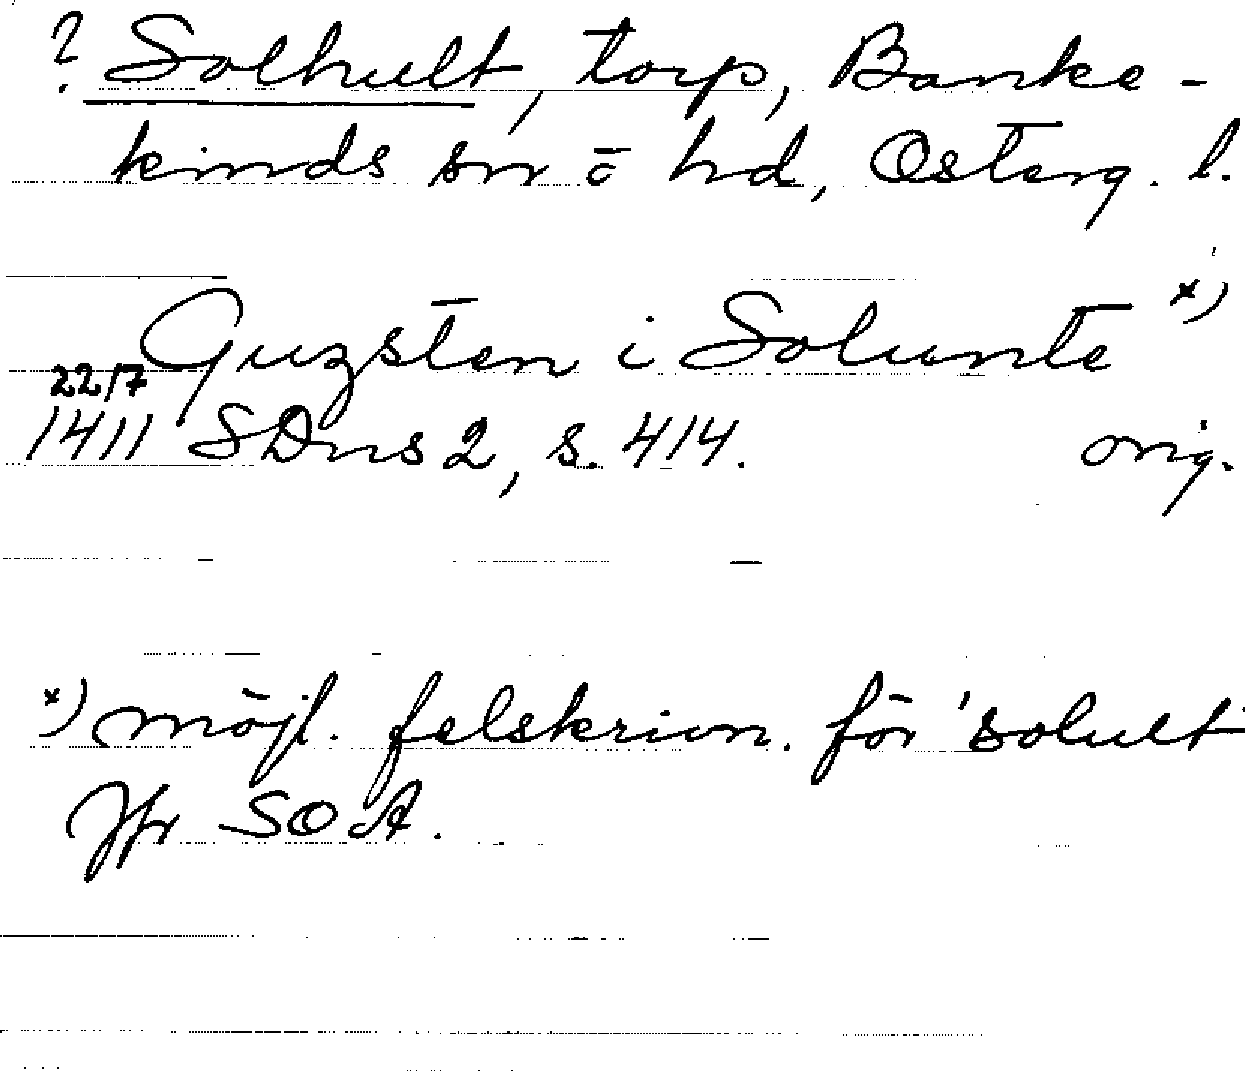 ? Solhult, torp, Banke-
kinds sn o hd, Österg. l.
Guzsten i Solunte x)
22/7
1411 SDns 2, s. 414. orig.
x) möjl. felskrivn. för 'solult'
Jfr SOA.